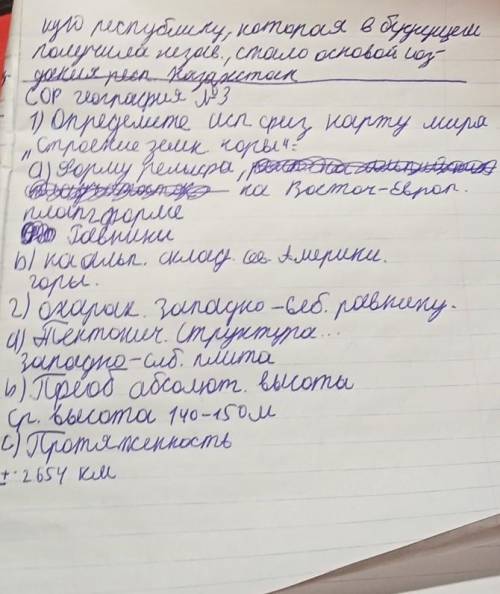 кую республику, которая в будущем
получила незав., стало основой соз-
дания респ. Казахстан
СОР география №3
1) Определите исп физ карту мира
"Строение земн коры":
а) Форму рельефа,
на Восточ-Европ.
платформе
Равнины
b) на альп. склад. сев Америки.
горы.
2) охарак. Западно-сиб. равнину.
а) Тектонич. структура...
западно-сиб. плита
b) Преоб абсолют. высоты
ср. высота 140-150м
c) Протяженность
± 2654 км